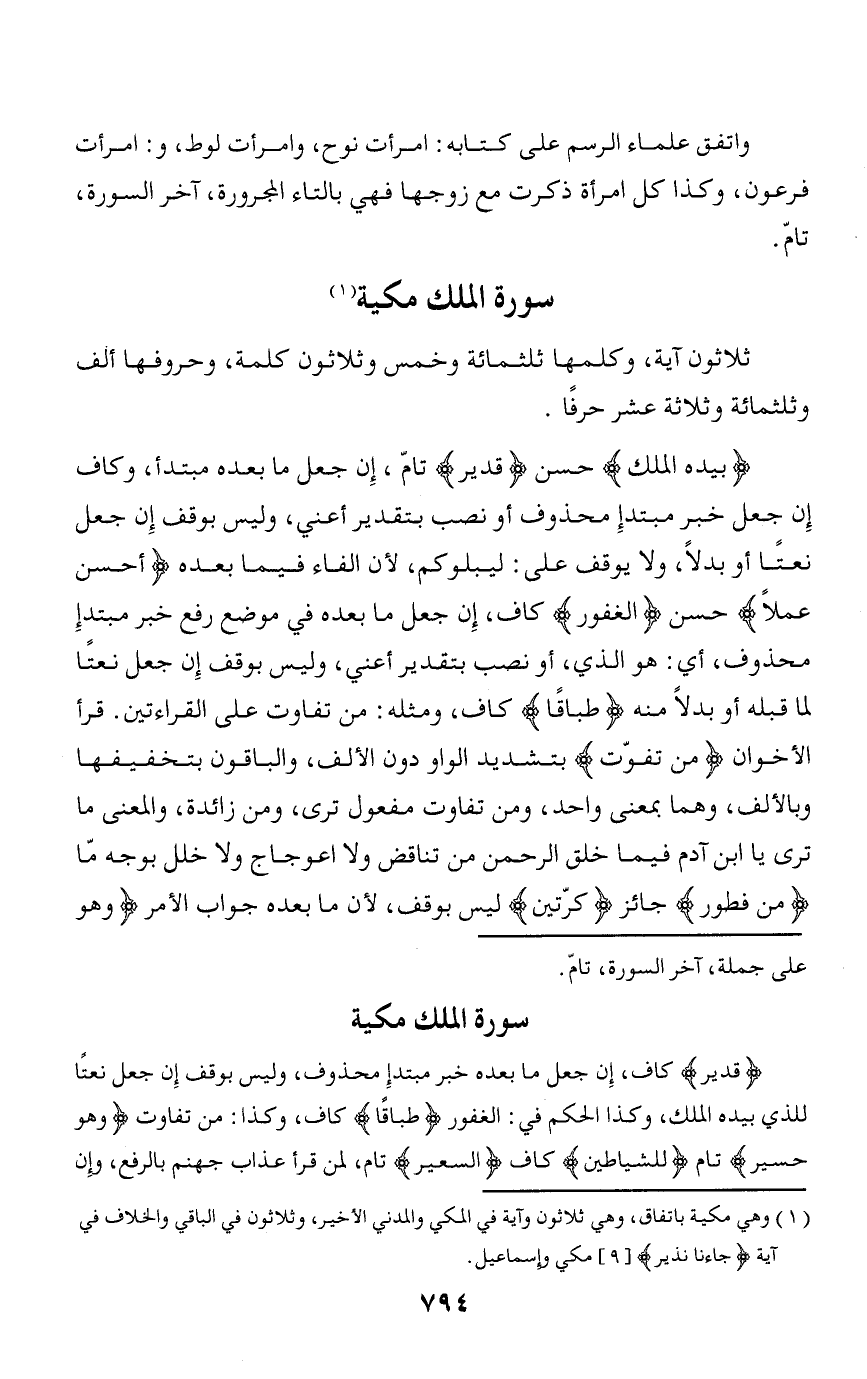 واتفق علماء الرسم على كتابه: امرأت نوح، وامرأت لوط، و: امرأت
فرعون، وكذا كل امرأة ذكرت مع زوجها فهي بالتاء المجرورة، آخر السورة،
تامّ.
سورة الملك مكية(١)
ثلاثون آية، وكلمها ثلثمائة وخمس وثلاثون كلمة، وحروفها ألف
وثلثمائة وثلاثة عشر حرفًا .
﴿بيده الملك﴾ حسن ﴿قدير﴾ تامّ ، إن جعل ما بعده مبتدأ، وكاف
إن جعل خبر مبتدإ محذوف أو نصب بتقدير أعني، وليس بوقف إن جعل
نعتًا أو بدلاً، ولا يوقف على: ليبلوكم، لأن الفاء فيما بعده ﴿أحسن
عملاً﴾ حسن ﴿الغفور﴾ كاف، إن جعل ما بعده في موضع رفع خبر مبتدإ
محذوف، أي: هو الذي، أو نصب بتقدير أعني، وليس بوقف إن جعل نعتًا
لما قبله أو بدلاً منه ﴿طباقًا﴾ كاف، ومثله: من تفاوت على القراءتين. قرأ
الأخوان ﴿من تفوّت﴾ بتشديد الواو دون الألف، والباقون بتخفيفها
وبالألف، وهما بمعنى واحد، ومن تفاوت مفعول ترى، ومن زائدة، والمعنى ما
ترى يا ابن آدم فيما خلق الرحمن من تناقض ولا اعوجاج ولا خلل بوجه مّا
﴿من فطور﴾ جائز ﴿كرّتين﴾ ليس بوقف، لأن ما بعده جواب الأمر ﴿وهو
على جملة، آخر السورة، تامّ.
سورة الملك مكية
﴿قدير﴾ كاف، إن جعل ما بعده خبر مبتدإ محذوف، وليس بوقف إن جعل نعتًا
للذي بيده الملك، وكذا الحكم في: الغفور ﴿طباقًا﴾ كاف، وكذا: من تفاوت ﴿وهو
حسير﴾ تام ﴿للشياطين﴾ كاف ﴿السعير﴾ تام، لمن قرأ عذاب جهنم بالرفع، وإن
(١) وهي مكية باتفاق، وهي ثلاثون وآية في المكي والمدني الأخير، وثلاثون في الباقي والخلاف في
آية ﴿جاءنا نذير﴾ [٩] مكي وإسماعيل.
٧٩٤